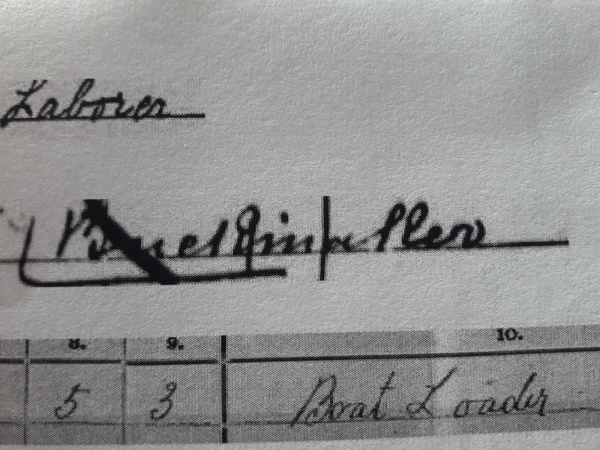 Laborer
8. 9. 10.
5 3 Boat Loader